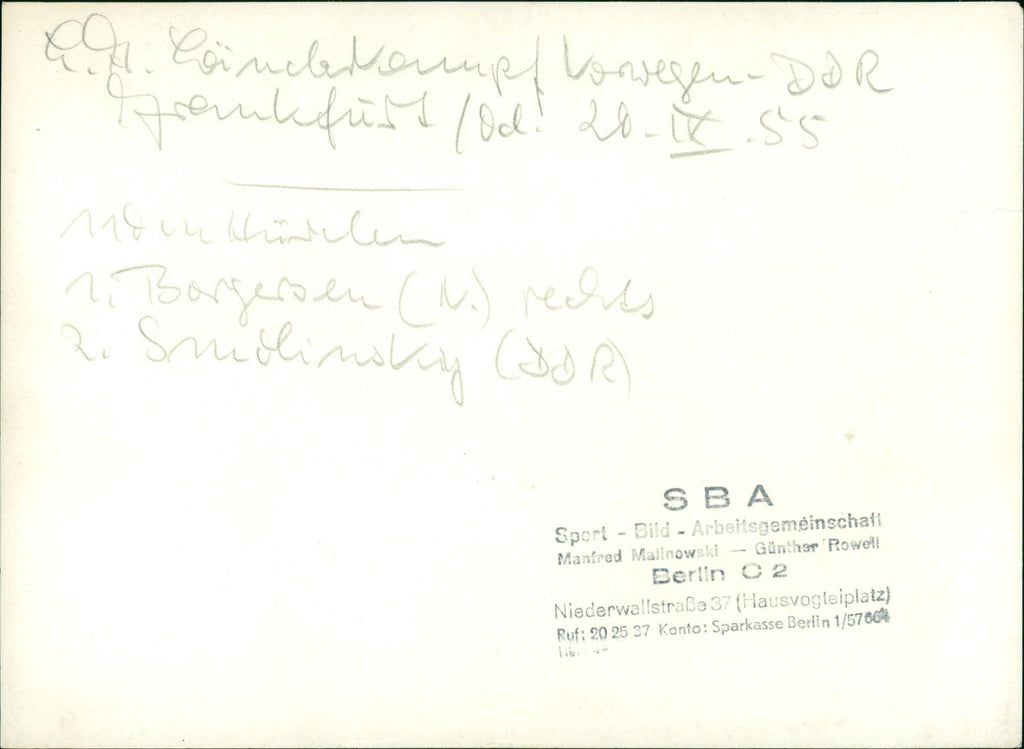 L.A. Länderkampf Norwegen-DDR
Frankfurt/Od. 20.IX.55
110 m Hürden
1. Borgersen (N.) rechts
2. Smolinsky (DDR)
SBA
Sport - Bild - Arbeitsgemeinschaft
Manfred Malinowski — Günther Rowell
Berlin C 2
Niederwallstraße 37 (Hausvogteiplatz)
Ruf: 20 25 37 Konto: Sparkasse Berlin 1/57664